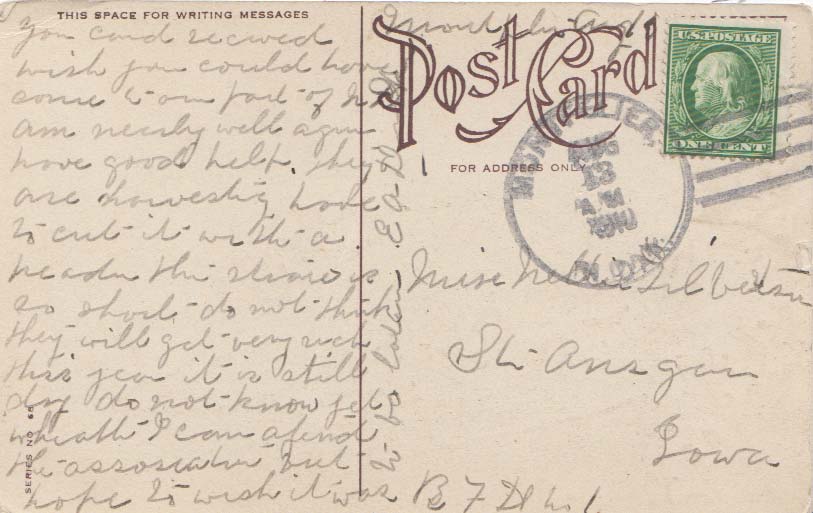 THIS SPACE FOR WRITING MESSAGES
you card recived
wish you could have
come to our part of N.D.
am nearly well again
have good help. they
are harvesting have
to cut it with a
header the straw is
so short do not think
they will get very rich
this year it is still
dry do not know yet
wheath I can atend
the association but
hope to wish it was
to be later
SERIES NO 68
Post Card
FOR ADDRESS ONLY
U.S. POSTAGE
ONE CENT
AUG
13
AM
1910
N. DAK.
Miss Nettie Gilbertson
St. Ansgar
Iowa